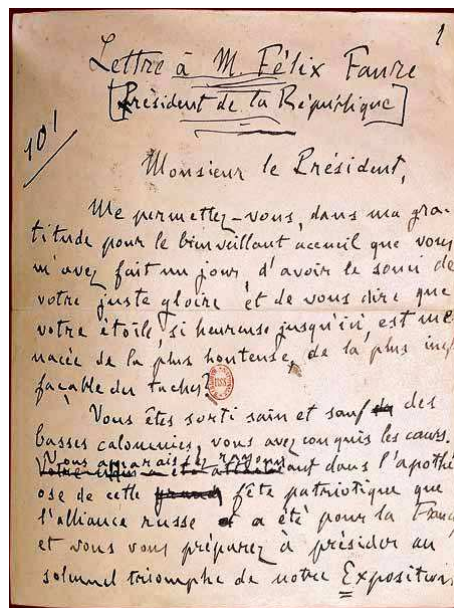 1
Lettre à M. Félix Faure
[Président de la République]
101
Monsieur le Président,
Me permettez-vous, dans ma gra-
titude pour le bienveillant accueil que vous
m'avez fait un jour, d'avoir le souci de
votre juste gloire et de vous dire que
votre étoile, si heureuse jusqu'ici, est me-
nacée de la plus honteuse, de la plus inef
façable des taches?
Vous êtes sorti sain et sauf des
basses calomnies, vous avez conquis les cœurs.
Vous apparaissez rayonnant dans l'apothé
ose de cette fête patriotique que
l'alliance russe a été pour la France
et vous vous préparez à présider au
solennel triomphe de notre Exposition